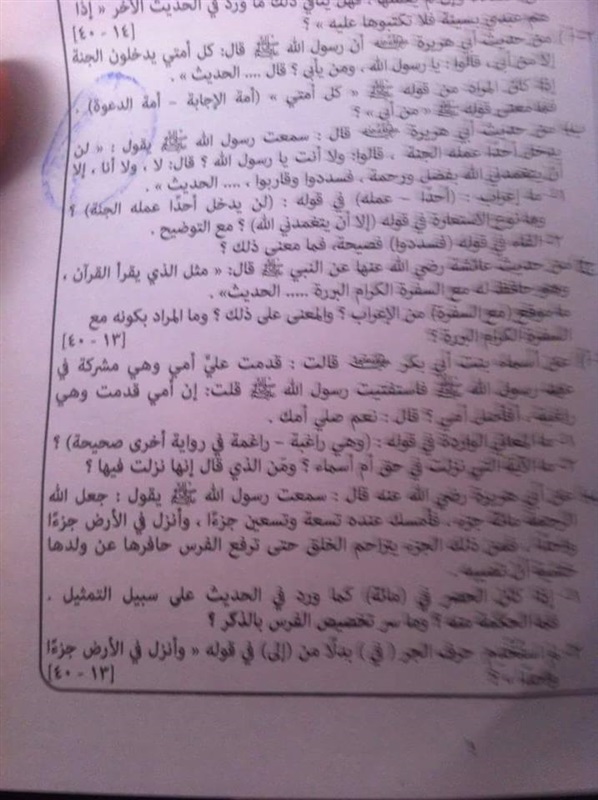 هم عبدي بسيئة فلا تكتبوها عليه » ؟ [١٤ - ٤٠]
من حديث أبي هريرة أن رسول الله ﷺ قال: كل أمتي يدخلون الجنة
إلا من أبى، قالوا : يا رسول الله ، ومن يأبى ؟ قال .... الحديث » .
إذا كان المراد من قوله ﷺ « كل أمتي » (أمة الإجابة - أمة الدعوة) .
فما معنى قوله ﷺ « من أبى » ؟
من حديث أبي هريرة قال : سمعت رسول الله ﷺ يقول : « لن
يدخل أحدًا عمله الجنة ، قالوا: ولا أنت يا رسول الله ؟ قال: لا ، ولا أنا ، إلا
أن يتغمدني الله بفضل ورحمة ، فسددوا وقاربوا ، .... الحديث » .
ما إعراب : (أحدًا - عمله) في قوله : (لن يدخل أحدًا عمله الجنة) ؟
وما نوع الاستعارة في قوله (إلا أن يتغمدني الله) ؟ مع التوضيح .
الفاء في قوله (فسددوا) فصيحة، فما معنى ذلك ؟
من حديث عائشة رضي الله عنها عن النبي ﷺ قال: « مثل الذي يقرأ القرآن ،
وهو حافظ له مع السفرة الكرام البررة ..... الحديث» .
ما موقع (مع السفرة) من الإعراب ؟ والمعنى على ذلك ؟ وما المراد بكونه مع
السفرة الكرام البررة ؟ [١٣ - ٤٠]
عن أسماء بنت أبي بكر قالت : قدمت عليَّ أمي وهي مشركة في
عهد رسول الله ﷺ فاستفتيت رسول الله ﷺ قلت: إن أمي قدمت وهي
راغبة ، أفأصل أمي ؟ قال : نعم صلي أمك .
ما المعاني الواردة في قوله : (وهي راغبة - راغمة في رواية أخرى صحيحة) ؟
ما الآية التي نزلت في حق أم أسماء ؟ ومَن الذي قال إنها نزلت فيها ؟
عن أبي هريرة رضي الله عنه قال : سمعت رسول الله ﷺ يقول : جعل الله
الرحمة مائة جزء ، فأمسك عنده تسعة وتسعين جزءًا ، وأنزل في الأرض جزءًا
واحدًا ، فمن ذلك الجزء يتراحم الخلق حتى ترفع الفرس حافرها عن ولدها
خشية أن تصيبه .
إذا كان الحصر في (مائة) كما ورد في الحديث على سبيل التمثيل .
فما الحكمة منه ؟ وما سر تخصيص الفرس بالذكر ؟
حرف الجر ( في ) بدلًا من (إلى) في قوله « وأنزل في الأرض جزءًا
واحدًا » ؟ [١٣ - ٤٠]